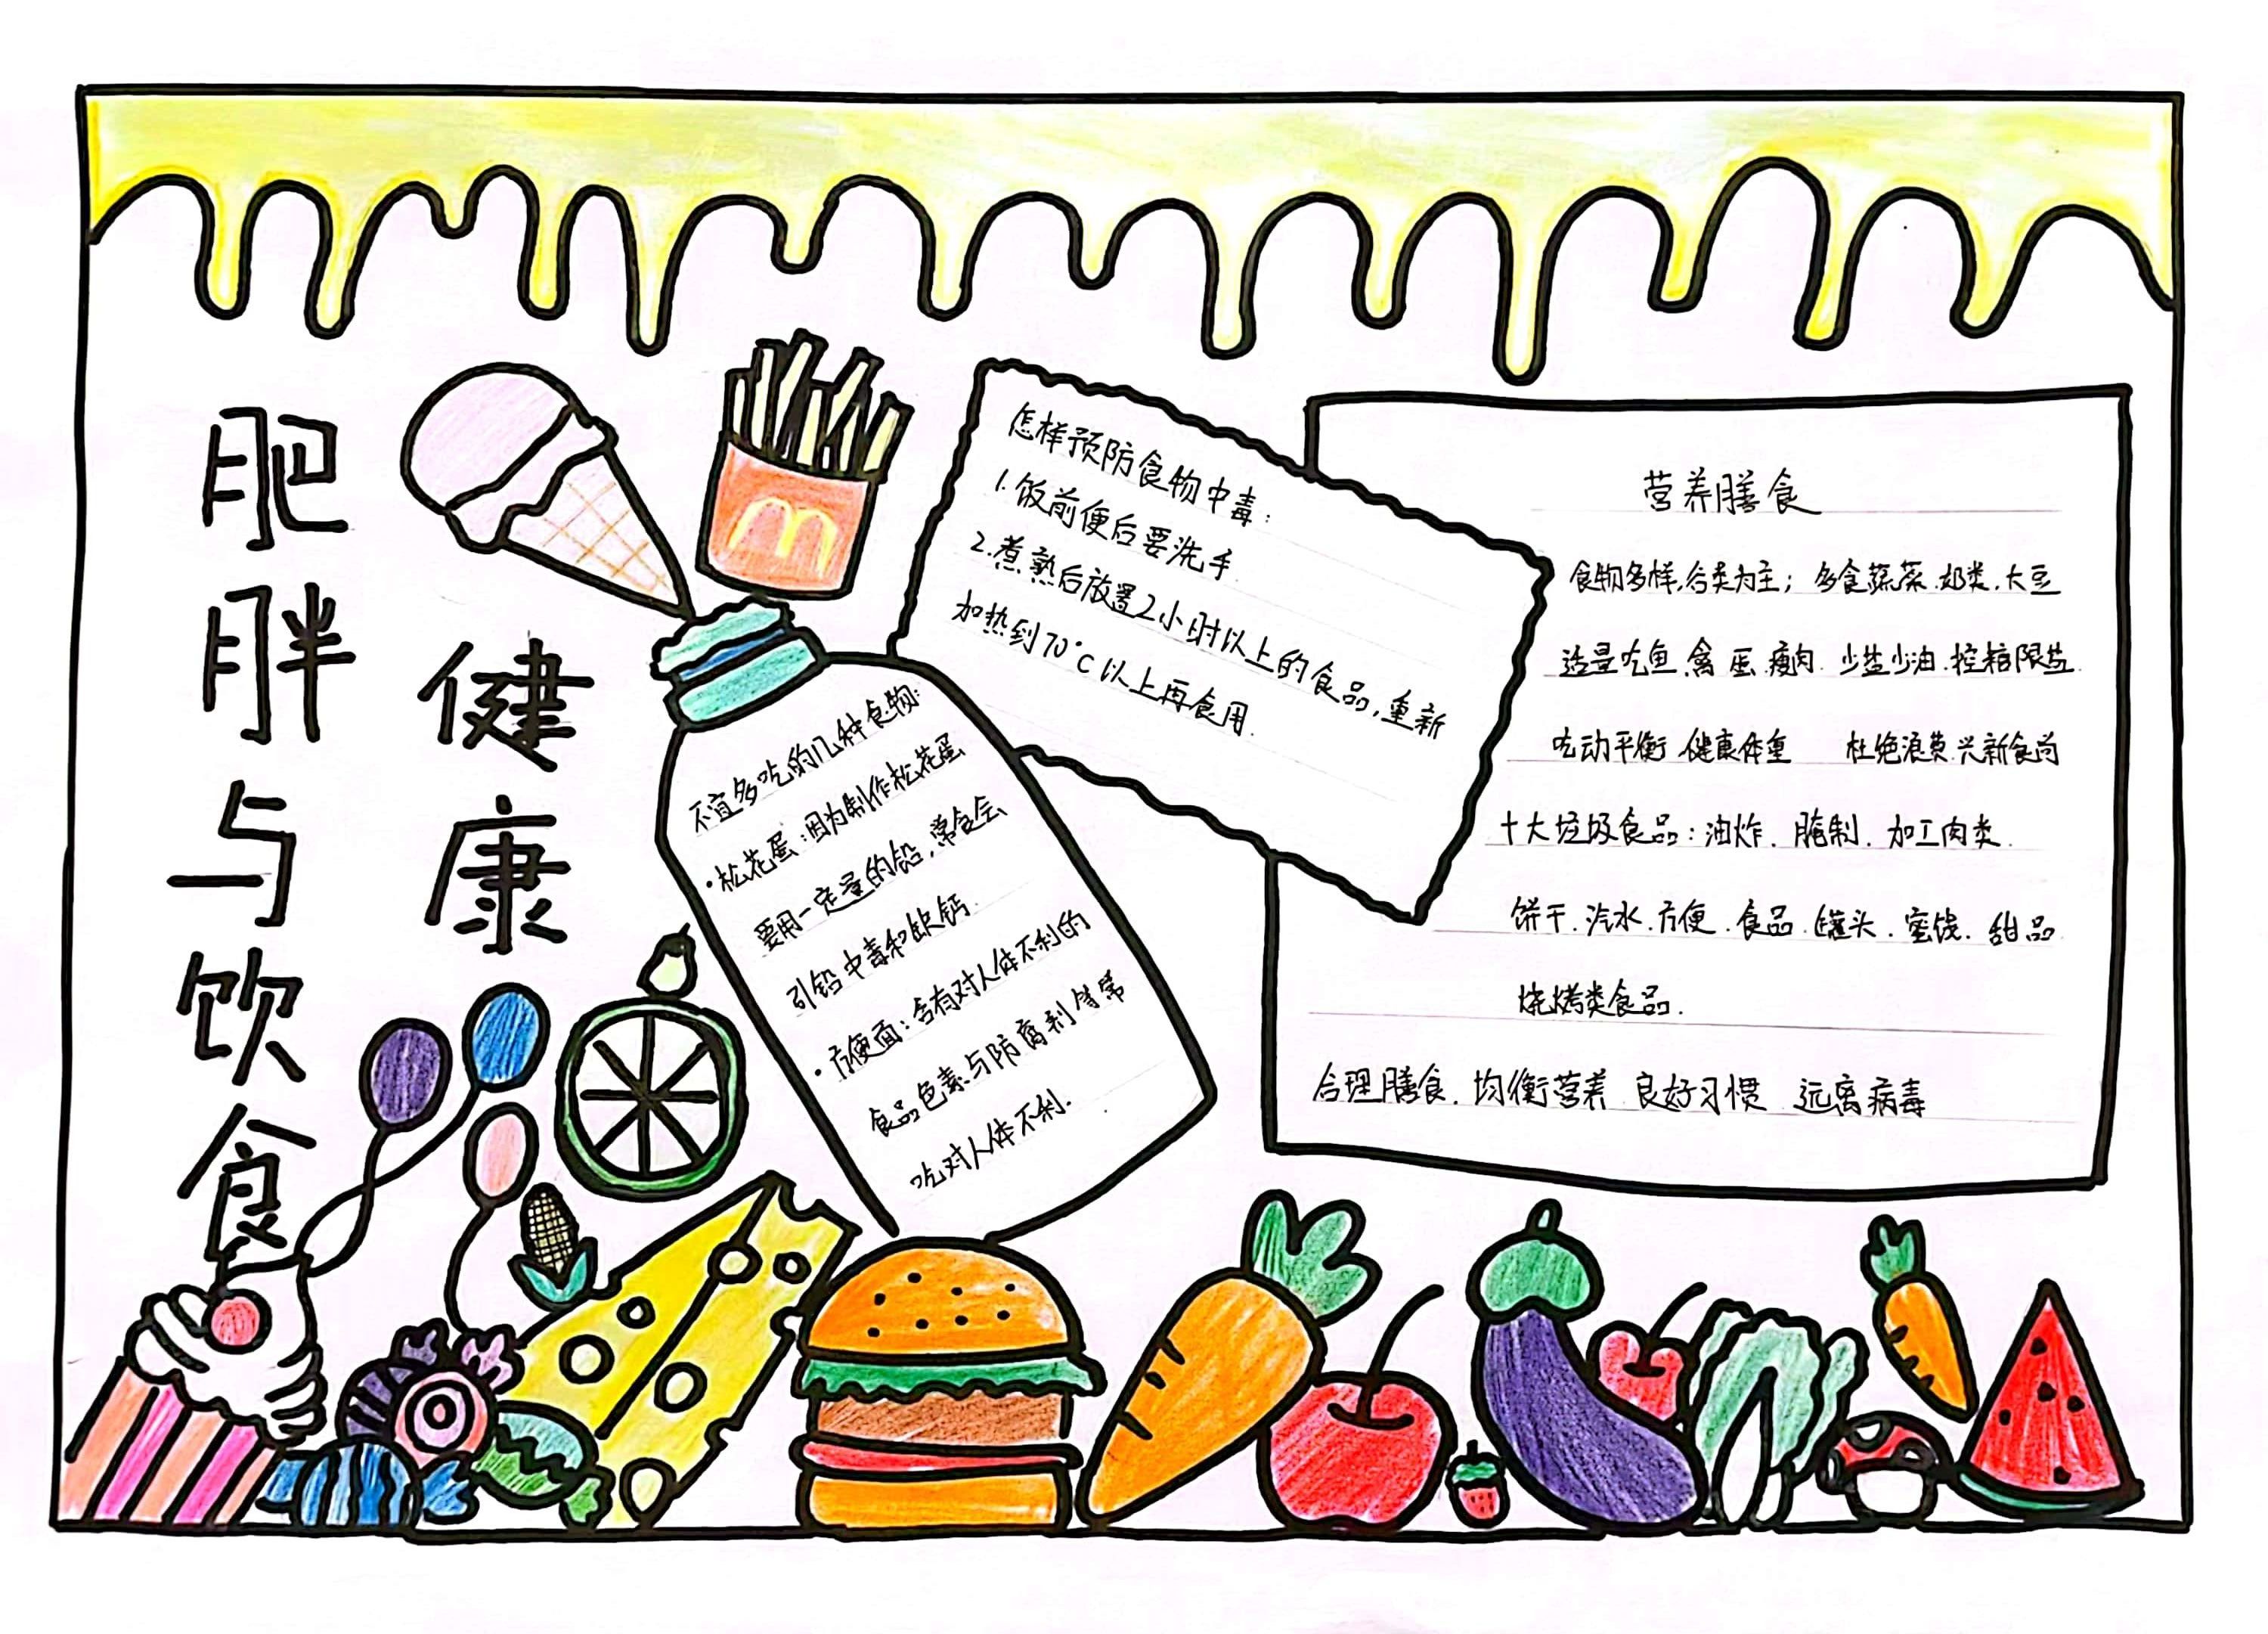 肥胖与饮食
健康
怎样预防食物中毒：
1.饭前便后要洗手.
2.煮熟后放置2小时以上的食品，重新
加热到70°C以上再食用.
不宜多吃的几种食物：
·松花蛋：因为制作松花蛋
要用一定量的铅，常食会
引铅中毒和缺钙.
·方便面：含有对人体不利的
食品色素与防腐剂等常
吃对人体不利.
营养膳食
食物多样，谷类为主；多食蔬菜.奶类.大豆
适量吃鱼 禽 蛋.瘦肉. 少盐少油.控糖限盐.
吃动平衡 健康体重 杜绝浪费.兴新食尚
十大垃圾食品：油炸.腌制.加工肉类.
饼干.汽水.方便.食品.罐头.蜜饯.甜品.
烧烤类食品.
合理膳食.均衡营养 良好习惯 远离病毒